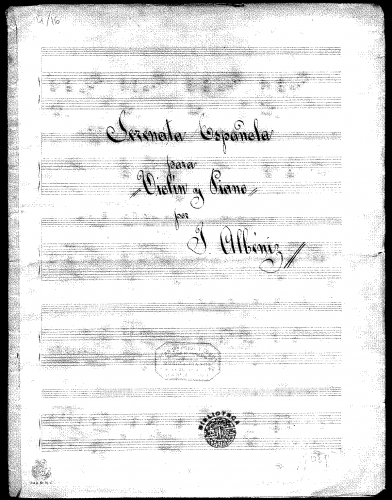 Serenata Española
para
Violin y Piano
por
I. Albéniz
BIBLIOTECA